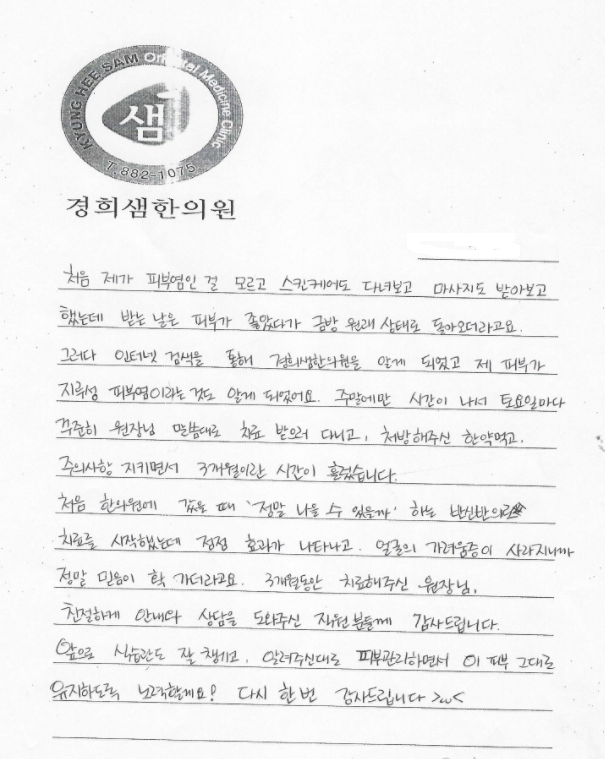 KYUNG HEE SAM Oriental Medicine Clinic
샘
T.882-1075
경희샘한의원
처음 제가 피부염인 걸 모르고 스킨케어도 다녀보고 마사지도 받아보고
했는데 받는 날은 피부가 좋았다가 금방 원래 상태로 돌아오더라고요.
그러다 인터넷 검색을 통해 경희샘한의원을 알게 되었고 제 피부가
지루성 피부염이라는것도 알게 되었어요. 주말에만 시간이 나서 토요일마다
꾸준히 원장님 말씀대로 치료 받으러 다니고, 처방해주신 한약먹고,
주의사항 지키면서 3개월이란 시간이 흘렀습니다.
처음 한의원에 갔을 때 '정말 나을 수 있을까' 하는 반신반의로
치료를 시작했는데 점점 효과가 나타나고, 얼굴의 가려움증이 사라지니까
정말 믿음이 확 가더라고요. 3개월동안 치료해주신 원장님,
친절하게 안내와 상담을 도와주신 직원분들께 감사드립니다.
앞으로 식습관도 잘 챙기고, 알려주신대로 피부관리하면서 이 피부 그대로
유지하도록 노력할게요! 다시 한번 감사드립니다 >ω<